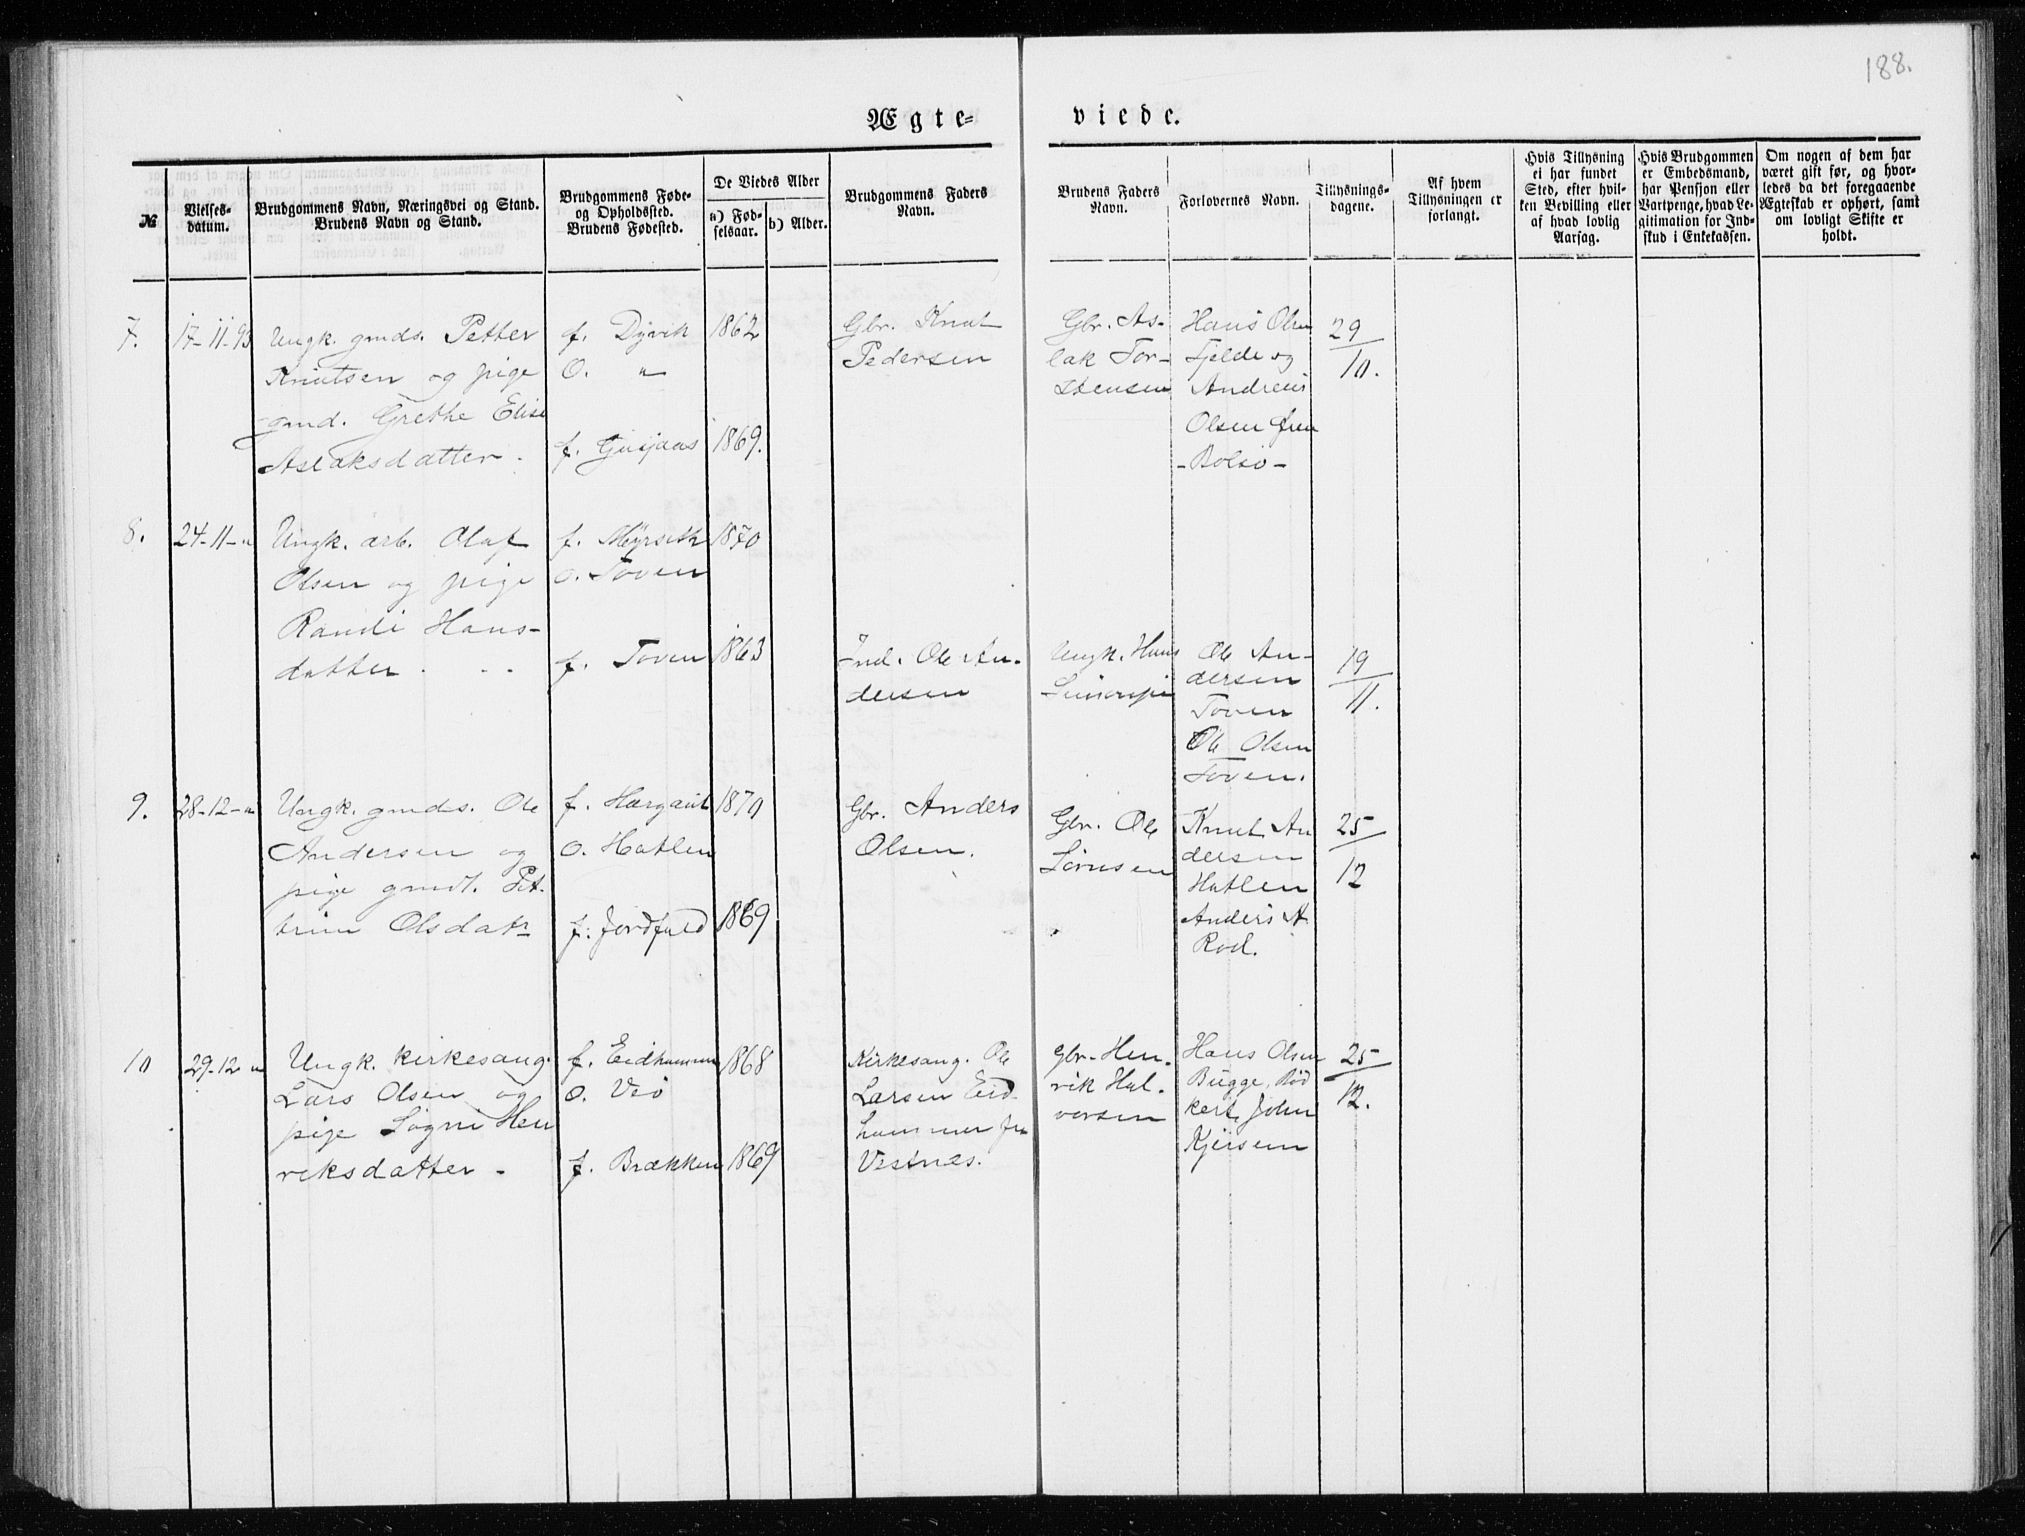 188.
Ægte-
viede.
№
Vielses-
datum.
Brudgommens Navn, Næringsvei og Stand.
Brudens Navn og Stand.
Brudgommens Føde-
og Opholdssted.
Brudens Fødested.
De Viedes Alder
a) Fød-
selsaar.
b) Alder.
Brudgommens Faders
Navn.
Brudens Faders
Navn.
Forlovernes Navn.
Tillysnings-
dagene.
Af hvem
Tillysningen er
forlangt.
Hvis Tillysning
ei har fundet
Sted, efter hvil-
ken Bevilling eller
af hvad lovlig
Aarsag.
Hvis Brudgommen
er Embedsmand,
har Pension eller
Vartpenge, hvad Le-
gitimation for Ind-
skud i Enkekassen.
Om nogen af dem har
været gift før, og hvor-
ledes da det foregaaende
Ægteskab er ophørt, samt
om lovligt Skifte er
holdt.
7.
17-11-93
Ungk. gmds. Petter
Knutsen og pige
gmd. Grethe Elise
Aslaksdatter.
f. Dyrvik
O. "
f. Gusjaas
1862
1869.
Gbr. Knut
Pedersen
Gbr. As-
lak Tor-
stensen
Hans Olsen
Fjelde og
Andreas
Olsen fra
- Bolsø -
29
10.
8.
24-11-"
Ungk. arb. Olaf
Olsen og pige
Randi Hans-
datter.
f. Myrseth
o. Toven
f. Toven
1870
1863
Ind. Ole An-
dersen
Ungk. Hans
Ole An-
dersen
Toven
Ole Olsen
Toven.
19
11.
9.
28-12-"
Ungk. gmds. Ole
Andersen og
pige gmdt. Pet-
rine Olsdatr
f. Hargaut
O. Hatlen
f. Jordfald
1870
1869
Gbr. Anders
Olsen.
Gbr. Ole
Knut An
dersen
Hatlen
Anders A.
Rød.
25
12
10
29-12 "
Ungk. kirkesang.
Lars Olsen og
pige Søgni Hen
riksdatter -
f. Eidhammer
O. Veø
f. Brækken
1868
1869
Kirkesang. Ole
Larsen Eid-
hammer fra
Vestnes.
gbr. Hen-
rik Hal-
vorsen
Hans Olsen
Bugge, Rød
John
25
12.